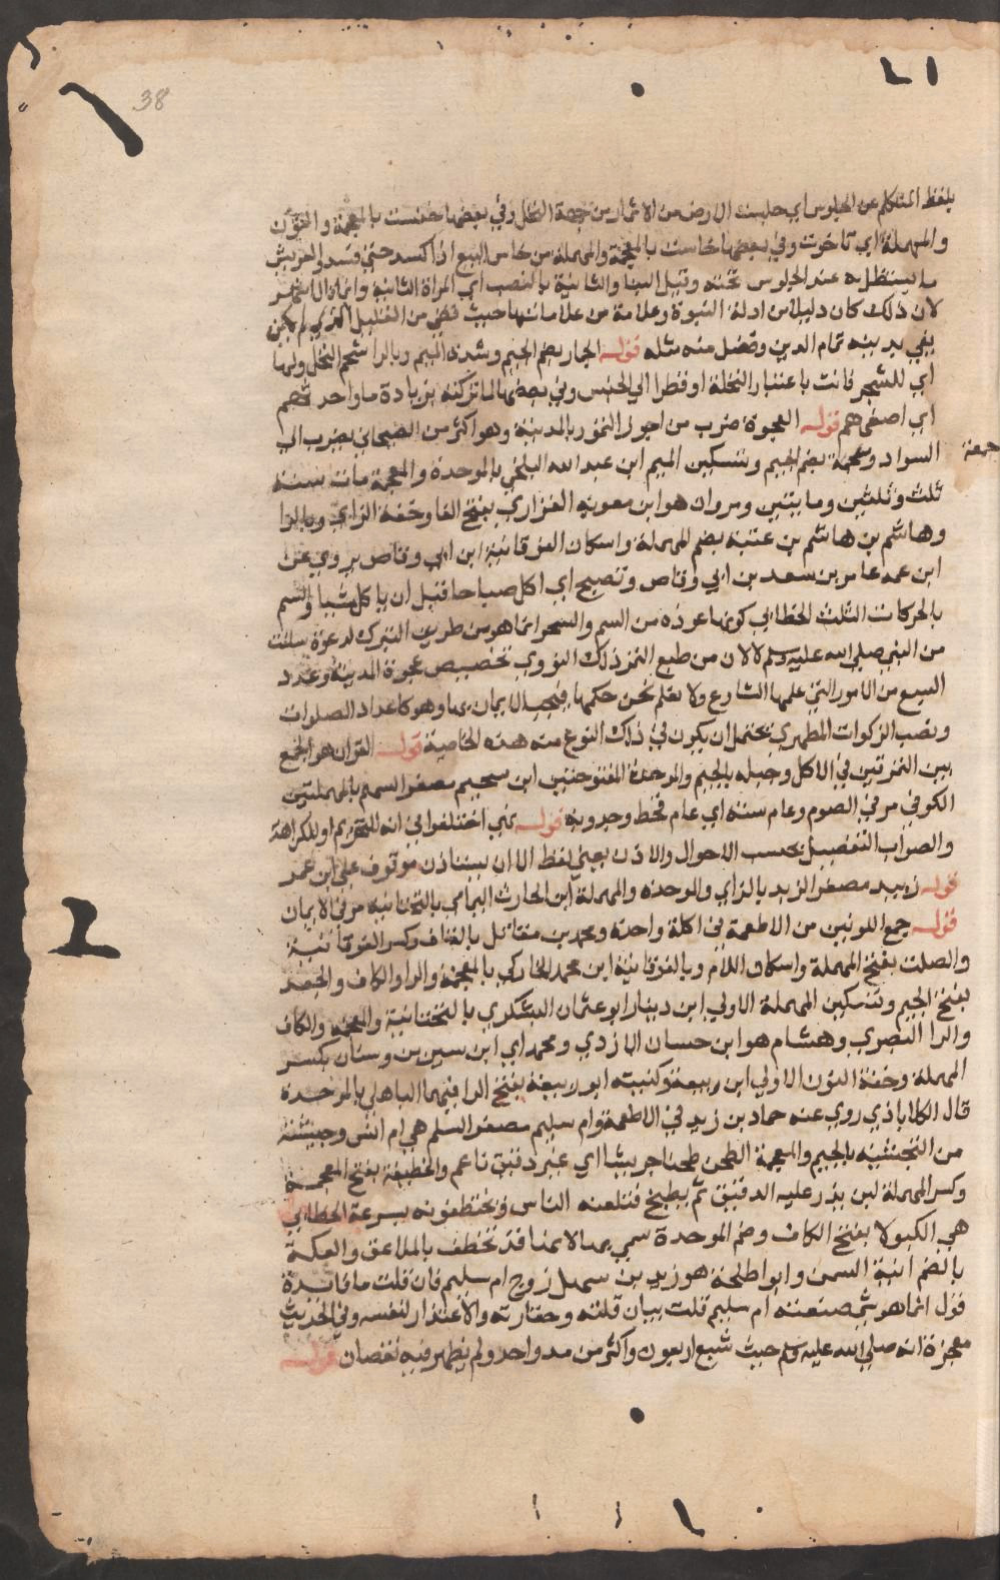 38
بلفظ المتكلم عن الجلوس اي جلست الارض من الاثمار من جهة النخل وفي بعضها خنست بالمعجمة والنون
والمهملة اي تاخرت وفي بعضها خاست بالمعجمة والمهملة من خاس البيع اذا كسد حتي فسد والعريش
ما يستظل به عند الجلوس تحته وقيل البنا والثانية بالنصب اي المراة الثانية وانما قال اشهد
لان ذلك كان دليلا من ادلة النبوة وعلامة من علاماتها حيث قضي من القليل الذي لم يكن
يفي بدينه تمام الدين وفضل منه مثله قوله الجمار بضم الجيم وشدة الميم وبالرا شحم النخل ولها
اي للشجر فانث باعتبار النخلة او نظرا الي الجنس وفي بعضها لما تركته بزيادة ما واحد ثهم
اي اصغرهم قوله العجوة ضرب من اجود التمور بالمدينة وهو اكثر من الصيحاني يضرب الي
جمعة
السواد وجمعة بضم الجيم وتسكين الميم ابن عبد الله البلخي بالموحدة والمعجمة مات سنة
ثلث وثلثين ومايتين ومروان هو ابن معوية الفزاري بفتح الفا وخفة الزاي وبالرا
وهاشم بن هاشم بن عتبة بضم المهملة واسكان الفوقانية ابن ابي وقاص يروي عن
ابن عمه عامر بن سعد بن ابي وقاص وتصبح اي اكل صباحا قبل ان ياكل شيا والسم
بالحركات الثلث الخطابي كونها عوذة من السم والسحر انما هو من طريق التبرك لدعوة سلفت
من النبي صلي الله عليه وسلم لا لان من طبع التمر ذلك النووي تخصيص عجوة المدينة وعدد
السبع من الامور التي علمها الشارع ولا نعلم نحن حكمها فيجب الايمان بها وهو كاعداد الصلوات
ونصب الزكوات المطهري يحتمل ان يكون في ذلك النوع منه هذه الخاصية قوله القران هو الجمع
بين التمرتين في الاكل وجبله بالجيم والموحدة المفتوحتين ابن سحيم مصغر السحم بالمهملتين
الكوفي مر في الصوم وعام سنة اي عام قحط وجدوبة قوله نهي اختلفوا في انه للتحريم او للكراهة
والصواب التفصيل بحسب الاحوال والاذن يعني لفظ الا ان يستاذن موقوف علي ابن عمر
قوله زبيد مصغر الزبد بالزاي والموحدة والمهملة ابن الحارث اليامي بالتحتانية مر في الايمان
قوله جمع اللونين من الاطعمة في اكلة واحدة ومحمد بن مقاتل بالقاف وكسر الفوقانية
والصلت بفتح المهملة واسكان اللام وبالفوقانية ابن محمد الخاركي بالمعجمة والرا والكاف والجعد
بفتح الجيم وتسكين المهملة الاولي ابن دينار ابو عثمان اليشكري بالتحتانية والمعجمة والكاف
والرا البصري وهشام هو ابن حسان الازدي ومحمد اي ابن سيرين وسنان بكسر
المهملة وخفة النون الاولي ابن ربيعة وكنيته ابو ربيعة بفتح الرا فيهما الباهلي بالموحدة
قال الكلاباذي روي عنه حماد بن زيد في الاطعمة وام سليم مصغر السلم هي ام انس وجشته
من التجشية بالجيم والمعجمة الطحن طحنا جريشا اي غير دقيق ناعم والخطيفة بفتح المعجمة
وكسر المهملة لبن يذر عليه الدقيق ثم يطبخ فتلعقه الناس ويختطفونه بسرعة الخطابي
هي الكبولا بفتح الكاف وضم الموحدة سمي بها لانها قد تخطف بالملاعق والعكة
بالضم انية السمن وابو طلحة هو زيد بن سهل زوج ام سليم فان قلت ما فايدة
قول انما هو شي صنعته ام سليم قلت بيان قلته وحقارته والاعتذار لنفسه وفي الحديث
معجزة انه صلي الله عليه وسلم حيث شبع اربعون واكثر من مد واحد ولم يظهر فيه نقصان قوله